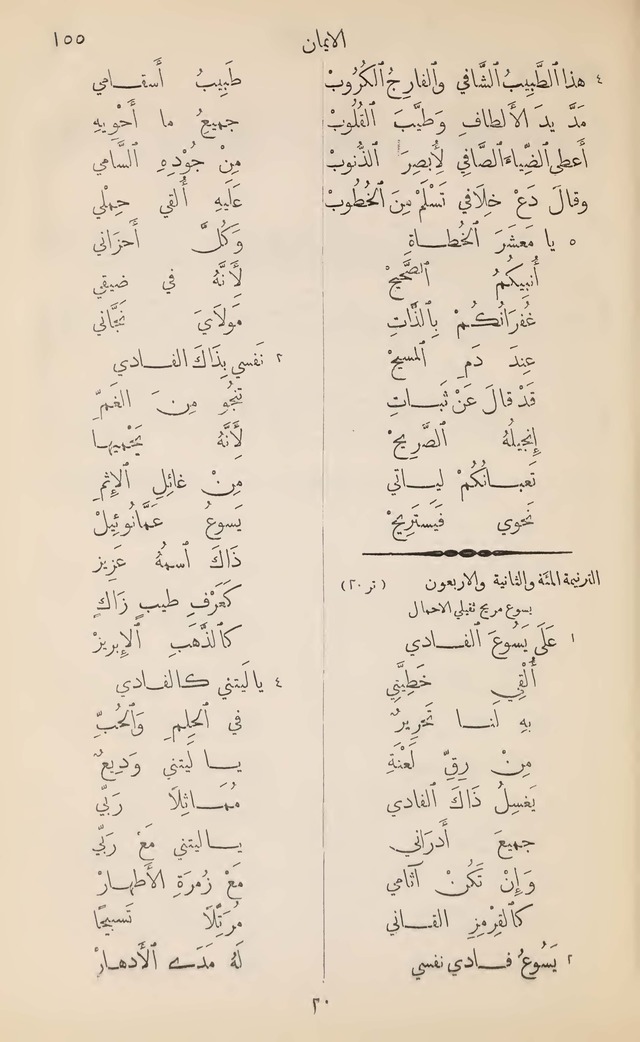 الايمان
١٥٥
٤ هذا ٱلطَّبِيبُ ٱلشَّافي وٱلفارِجُ ٱلكُرُوبْ
مَدَّ يدَ ٱلأَلطافِ وَطيَّبَ ٱلقُلُوبْ
أَعطى ٱلضِّياءَ ٱلصَّافي لِأُبصِرَ ٱلذُّنوبْ
وقالَ دَعْ خِلَافي تَسْلَمْ مِنَ ٱلخُطُوبْ
٥ يا مَعشَرَ ٱلخُطاةِ
أُنبِيكُمُ ٱلصَّحيحْ
غُفرَانُكُمْ بِٱلذَّاتِ
عِندَ دَمِ ٱلمسيحْ
قَدْ قالَ عَنْ ثَباتِ
إِنجيلُهُ ٱلصَّرِيحْ
تَعبانُكُمْ لِياتي
نَحوي فَيَستَرِيحْ
الترنيمة المئة والثانية والاربعون (تر ٢٠)
يسوع مريح ثقيلي الاحمال
١ عَلَى يَسُوعَ ٱلفادي
أُلْقِي خَطِيَّتي
بِهِ لَنا تَحْرِيرٌ
مِنْ رِقِّ لَعْنَةِ
يَغسِلُ ذاكَ ٱلفادي
جميعَ أَدرَاني
وَإِنْ تَكُنْ آثامي
كٱلقِرْمِزِ ٱلقاني
٢ يَسُوعُ فادي نفسي
طَبِيبُ أَسقامي
جميعُ ما أَحْوِيهِ
مِنْ جُوْدِهِ ٱلسَّامي
عَلَيهِ أُلقي حِمْلي
وَكُلَّ أَحزَاني
لأَنَّهُ في ضيقي
مَولَايَ نَجَّاني
٢ نَفسي بِذَاكَ ٱلفادي
تنجُو مِنَ ٱلغَمِّ
لأَنَّهُ يَحْميها
مِنْ غائِلِ ٱلإِثمِ
يَسوعُ عَمَّانُوئِيلْ
ذاكَ ٱسمُهُ عَزِيز
كَعَرْفِ طيبٍ زَاكٍ
كٱلذَّهَبِ ٱلإِبريزْ
٤ يا لَيتني كٱلفادي
في ٱلحِلمِ وَٱلحُبِّ
يا ليتني وَدِيعٌ
مُمَاثِلًا رَبِّي
يا ليتني مَعْ رَبِّي
مَعْ زُمرَةِ ٱلأَطهارْ
مُرَتِّلًا تَسبيحًا
لَهُ مَدَے ٱلأَدهارْ
٢٠